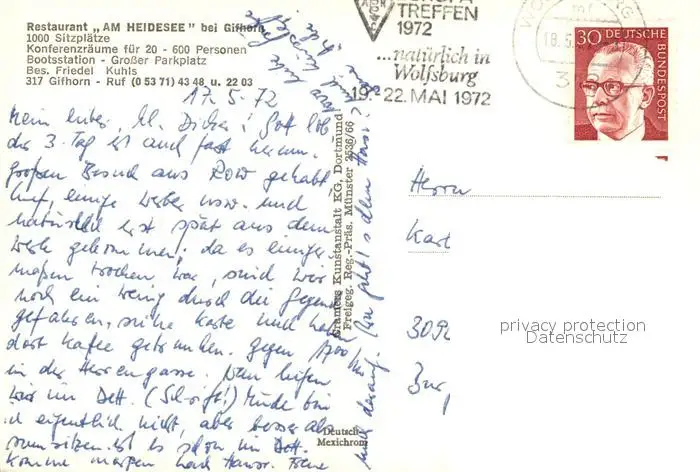 Restaurant „AM HEIDESEE" bei Gifhorn
1000 Sitzplätze
Konferenzräume für 20 - 600 Personen
Bootsstation - Großer Parkplatz
Bes. Friedel Kuhls
317 Gifhorn - Ruf (0 53 71) 43 48 u. 22 03
17. 5. 72
Mein lieber, kl. Dicker! Gott lob
der 3. Tag ist auch fast herum.
Großen Besuch aus gehabt
einige Werber usw. und
natürlich erst spät aus dem
Werk gekommen; da es einiger
maßen trocken war, sind wir
noch ein wenig durch die Gegend
gefahren, siehe Karte und haben
dort Kaffee getrunken. Gegen 1700 Uhr
in der Herrengasse. Nun liegen
wir im Bett. (Schrift!) Müde bin
ich eigentlich nicht, aber besser als
rumsitzen ist es schon im Bett.
Komme morgen nach Hannov. Freue
mich darauf. Wie geht's dem Hans?
Cramers Kunstanstalt KG, Dortmund
Freigeg. Reg.-Präs. Münster 2536/66
Deutsch-
Mexichrom
TREFFEN
1972
...natürlich in
Wolfsburg
19.-22. MAI 1972
18.5.
30 DEUTSCHE
BUNDESPOST
Herrn
Karl
3092
privacy protection
Datenschutz